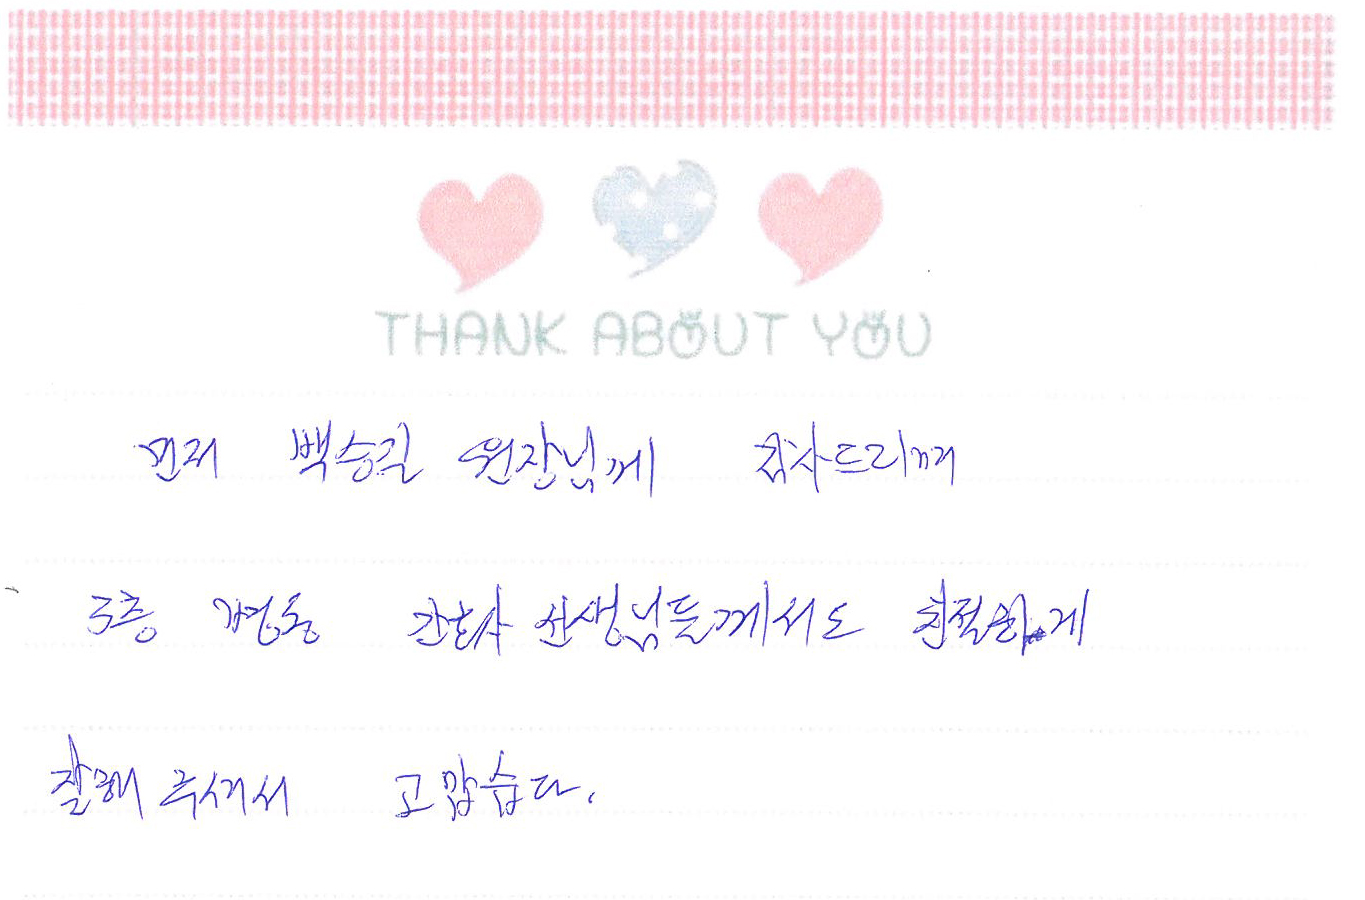 THANK ABOUT YOU
먼저 백승길 원장님께 감사드리며
5층 병동 간호사 선생님들께서도 친절하게
잘해 주셔서 고맙습니다.